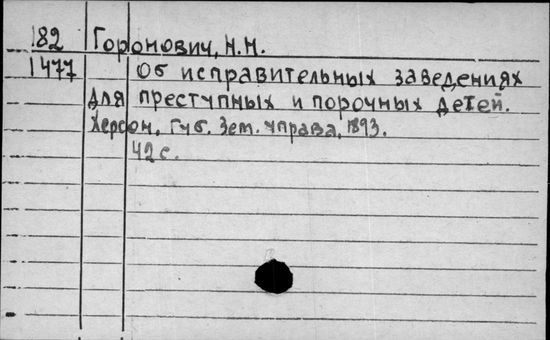 182 Горонович, Н.Н.
1477 Об исправительных заведениях
для преступных и порочных детей.
Херсон, Губ. Зем. управа, 1893.
42 с.